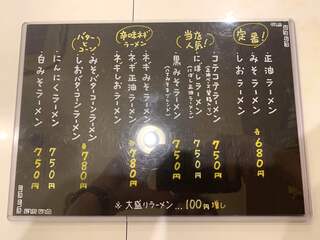 定番!
・正油ラーメン
・みそラーメン
・しおラーメン
各680円
当店人気!
・コテコテラーメン
750円
・にぼしラーメン
(にぼし正油ラーメン)
750円
・黒みそラーメン
750円
辛味ネギラーメン
・ネギみそラーメン
・ネギ正油ラーメン
・ネギしおラーメン
各780円
バターとコーン
・みそバターコーンラーメン
・しおバターコーンラーメン
各780円
・にんにくラーメン
750円
・白みそラーメン
750円
※大盛りラーメン...100円増し